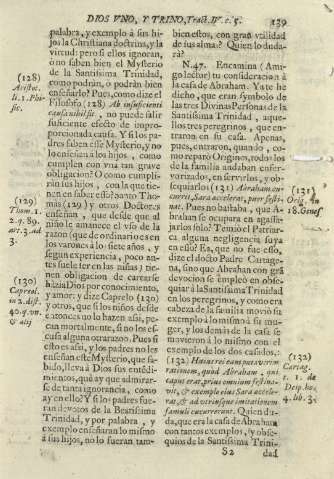 DIOS VNO, Y TRINO, Tract. IV. c. 5. 139
palabra, y exemplo à sus hi-
jos la Christiana doctrina, y la
virtud: pero si ellos ignoran,
ò no saben bien el Mysterio
de la Santissima Trinidad,
como podràn, ò podràn bien
enseñarle? Pues, como dize el
Filosofo (128) Ab insufficienti
causa nihil fit, no puede salir
suficiente efecto de impro-
porcionada causa. Y si los pa-
dres saben este Mysterio, y no
lo enseñan à los hijos, como
cumplen con vna tan grave
obligacion? O como cumpli-
ràn los hijos, con la que tie-
nen en saber esso? Santo Tho-
mas (129) y otros Doctores
enseñan, que desde que al
niño le amanece el vso de la
razon (que de ordinario es en
los varones à los siete años, y
segun experiencia, poco an-
tes suele ser en las niñas) tie-
nen obligacion de convertirse
hazia Dios por conocimiento,
y amor; y dize Capreolo (130)
y otros, que si los niños desde
entonces no lo hazen assi, pe-
can mortalmente, si no los es-
cusa alguna otra razon. Pues si
esto es assi, y los padres no les
enseñan este Mysterio, que sa-
bido, lleva à Dios sus entédi-
mientos, què ay que admirar-
se de tanta ignorancia, como
ay en ello? Y si los padres fue-
ran devotos de la Beatissima
Trinidad, y por palabra, y
exemplo enseñaran lo mismo
à sus hijos, no lo fueran tam-
(128)
Aristot.
li. 1. Phi-
sic.
(129)
Thom. 1.
2. q. 89.
art. 3. ad
3.
(130)
Capreol.
in 2. dist.
40. q. vn.
& alij
bien estos, con gran vtilidad
de sus almas? Quien lo duda-
rà?
N. 47. Encamina (Ami-
go lector) tu consideracion à
la casa de Abraham. Ya te he
dicho, que eran symbolo de
las tres Divinas Personas de la
Santissima Trinidad, aque-
llos tres peregrinos, que en-
traron en su casa. Apenas,
pues, entraron, quando, co-
mo reparò Origines, todos los
de la familia andaban enfer-
vorizados, en servirlos, y ob-
sequiarlos (131) Abraham cu-
currit, Sara accelerat, puer festi-
nat. Pues no bastaba, que A-
braham se ocupara en agassa-
jarlos solo? Temiò el Patriar-
ca alguna negligencia suya
en esso? Ea, que no fue esso,
dize el docto Padre Cartage-
na, sino que Abrahan con grã
devocion se empleò en obse-
quiar à la Santissima Trinidad
en los peregrinos, y como era
cabeza de la familia moviò su
exemplo à lo mismo à su mu-
ger, y los demàs de la casa se
movieron à lo mismo con el
exemplo de los dos casados.
(132) Hunc rei eam puto veram
rationem, quòd Abraham, qui
caput erat, prius omnium festina-
vit, & exemplo eius Sara accele-
rat, & ad vtriusque imitationem
famuli cucurrerunt. Quien du-
da, que era la casa de Abraham
con tantos exemplos, (y obse-
quios de la Santissima Trini-
(131)
Orig. in
18. Genes.
(132)
Cartag.
t. 1. de
Deip. ho.
4. lib. 3.
S2 dad